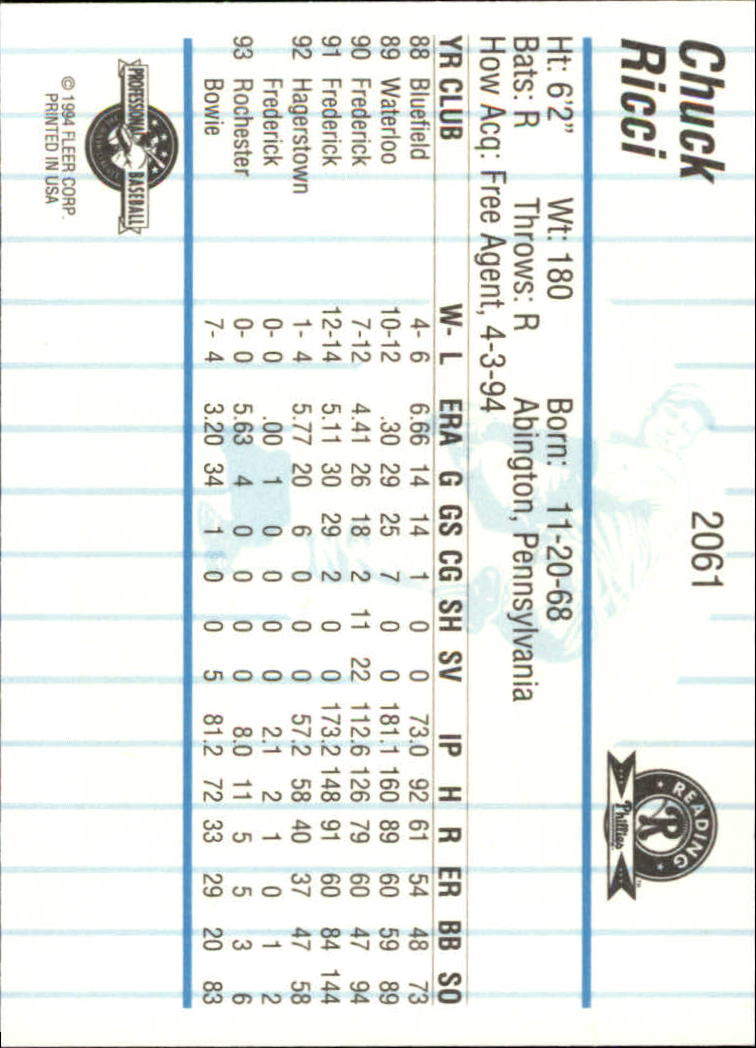 Chuck
Ricci
2061
READING
R
Phillies
Ht: 6'2" Wt: 180 Born: 11-20-68
Bats: R Throws: R Abington, Pennsylvania
How Acq: Free Agent, 4-3-94
YR CLUB W- L ERA G GS CG SH SV IP H R ER BB SO
88 Bluefield 4- 6 6.66 14 14 1 0 0 73.0 92 61 54 48 73
89 Waterloo 10-12 .30 29 25 7 0 0 181.1 160 89 60 59 89
90 Frederick 7-12 4.41 26 18 2 11 22 112.6 126 79 60 47 94
91 Frederick 12-14 5.11 30 29 2 0 0 173.2 148 91 60 84 144
92 Hagerstown 1- 4 5.77 20 6 0 0 0 57.2 58 40 37 47 58
Frederick 0- 0 .00 1 0 0 0 0 2.1 2 1 0 1 2
93 Rochester 0- 0 5.63 4 0 0 0 0 8.0 11 5 5 3 6
Bowie 7- 4 3.20 34 1 0 0 5 81.2 72 33 29 20 83
PROFESSIONAL BASEBALL
© 1994 FLEER CORP.
PRINTED IN USA